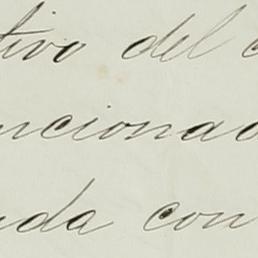 tivo del c
ncionad
nda con